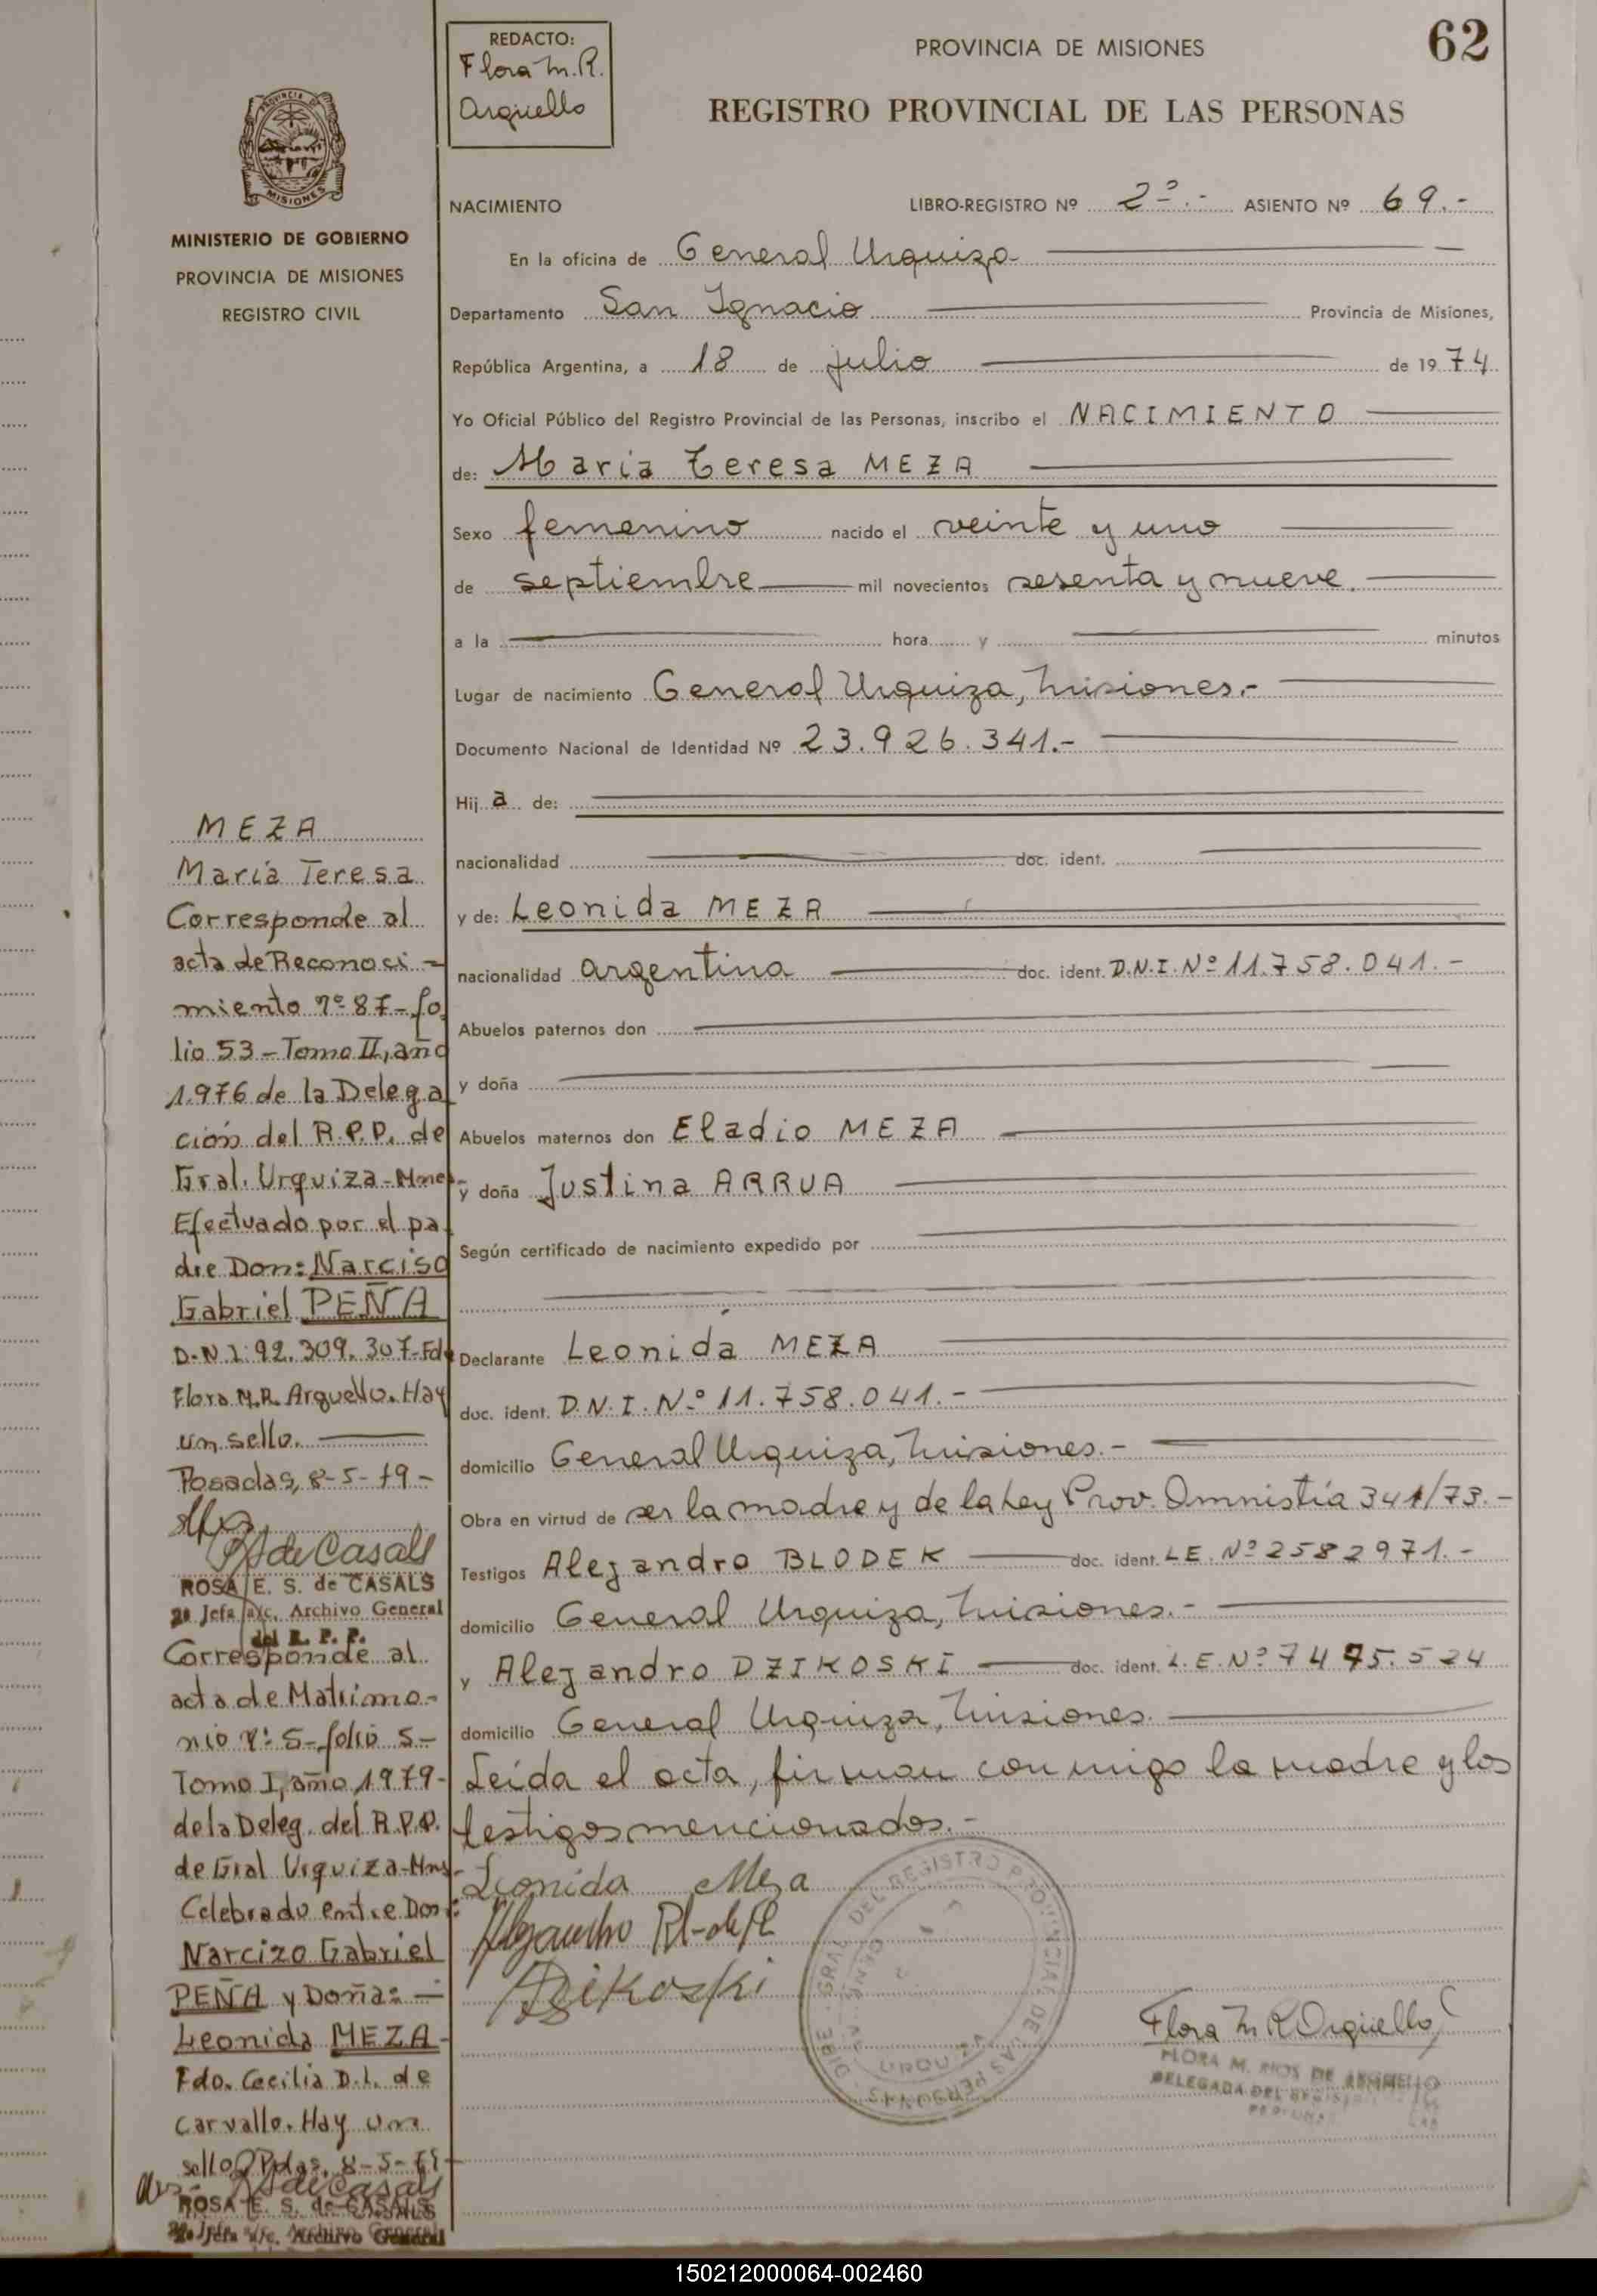 62
REDACTO:
Flora M. R.
Arguello
PROVINCIA DE MISIONES
REGISTRO PROVINCIAL DE LAS PERSONAS
PROVINCIA DE
MISIONES
MINISTERIO DE GOBIERNO
PROVINCIA DE MISIONES
REGISTRO CIVIL
NACIMIENTO LIBRO-REGISTRO Nº 2º.- ASIENTO Nº 69.-
En la oficina de General Urquiza
Departamento San Ignacio Provincia de Misiones,
República Argentina, a 18 de julio de 1974
Yo Oficial Público del Registro Provincial de las Personas, inscribo el NACIMIENTO
de: Maria Teresa MEZA
Sexo femenino nacido el veinte y uno
de septiembre mil novecientos sesenta y nueve.
a la hora y minutos
Lugar de nacimiento General Urquiza, Misiones.-
Documento Nacional de Identidad Nº 23.926.341.-
Hij a de:
nacionalidad doc. ident.
y de: Leonida MEZA
nacionalidad argentina doc. ident. D.N.I. Nº 11.758.041.-
Abuelos paternos don
y doña
Abuelos maternos don Eladio MEZA
y doña Justina ARRUA
Según certificado de nacimiento expedido por
Declarante Leonida MEZA
doc. ident. D.N.I. Nº 11.758.041.-
domicilio General Urquiza, Misiones.-
Obra en virtud de ser la madre y de la Ley Prov. Omnistía 341/73.-
Testigos Alejandro BLODEK doc. ident. L.E. Nº 2582971.-
domicilio General Urquiza, Misiones.-
y Alejandro DZIKOSKI doc. ident. L.E. Nº 7475.524
domicilio General Urquiza, Misiones.
Leída el acta, firman conmigo la madre y los
testigos mencionados.-
Leonida Meza
Dzikoski
DIRE. GRAL. DEL REGISTRO PROVINCIAL DE LAS PERSONAS
URQUIZA
Flora M R Arguello
FLORA M. RIOS DE ARGUELLO
DELEGADA DEL REGISTRO
MEZA
María Teresa
Corresponde al
acta de Reconoci-
miento nº 87-fo
lio 53-Tomo II, año
1.976 de la Delega
ción del R.P.P. de
Gral. Urquiza-Mnes-
Efectuado por el pa
dre Don: Narciso
Gabriel PEÑA
D.N.I: 92.309.307-Fdo
Flora M.R. Arguello. Hay
un sello.
Posadas, 8-5-79-
RSdeCasals
ROSA E. S. de CASALS
2ª Jefa a/c. Archivo General
del R. P. P.
Corresponde al
acta de Matrimo-
nio nº: 5-folio 5-
Tomo I, año 1979-
de la Deleg. del R.P.P.
de Gral Urquiza-Mns-
Celebrado entre Don:
Narcizo Gabriel
PEÑA y Doña:
Leonida MEZA-
Fdo. Cecilia D.L. de
Carvallo. Hay un
sello Pdas. 8-5-79-
RSdeCasals
ROSA E. S. de CASALS
2ª Jefa a/c. Archivo General
150212000064-002460